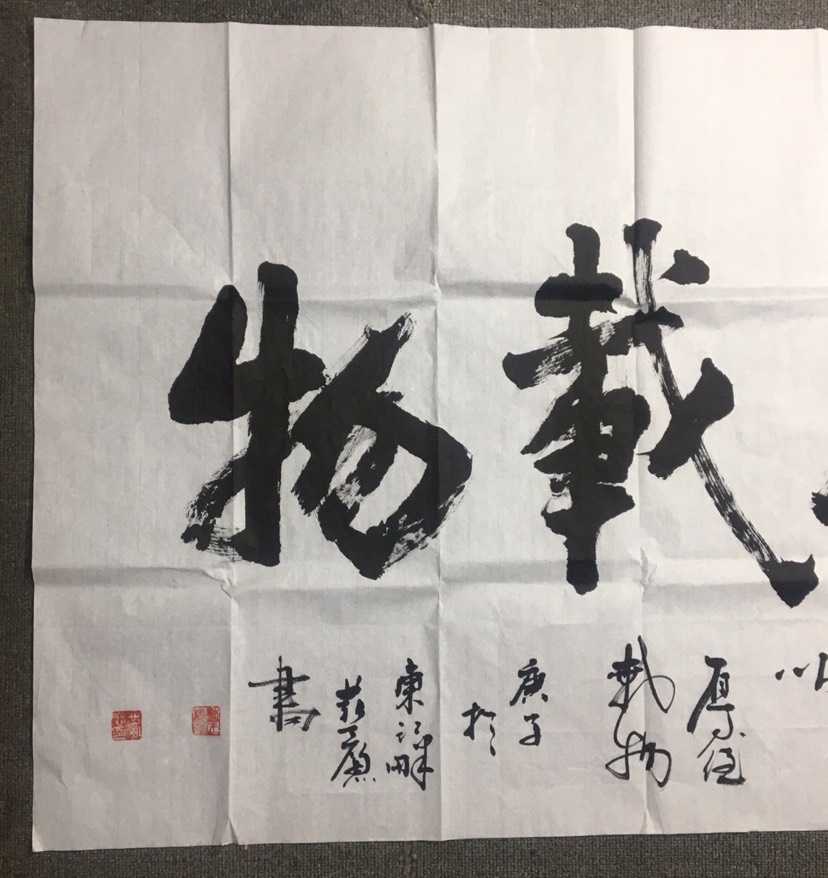 載物
以
厚德
載物
庚子
於
東江畔
書